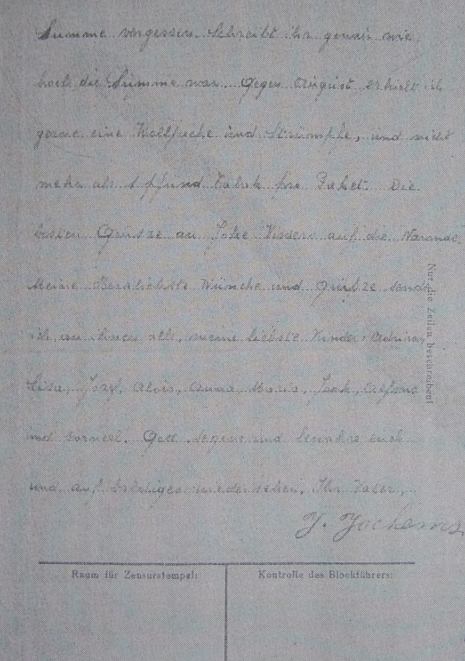 Summe vergessen. Schreibt ihr genau wie
hoch die Summe war. Gegen August erhielt ich
gerne eine Wolljacke und Strümpfe, und nicht
mehr als 1 pfund Tabak pro Paket. Die
besten Grüsze an auf die
Meine Herzlichste Wünche und Grüsze sende
ich an ihnen alle, meine liebste Kinder:
Lisa, Jozef, Alois, Anna, Maria, Alfons
und Corneel. Gott segene und euch
und auf baldiges wiedersehen. Ihr Vater,
J. Jochems
Nur die Zeilen beschreiben!
Raum für Zensurstempel:
Kontrolle des Blockführers: